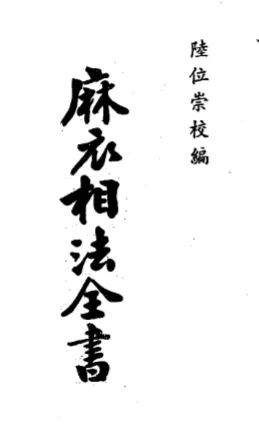 陸位崇校編
麻衣相法全書